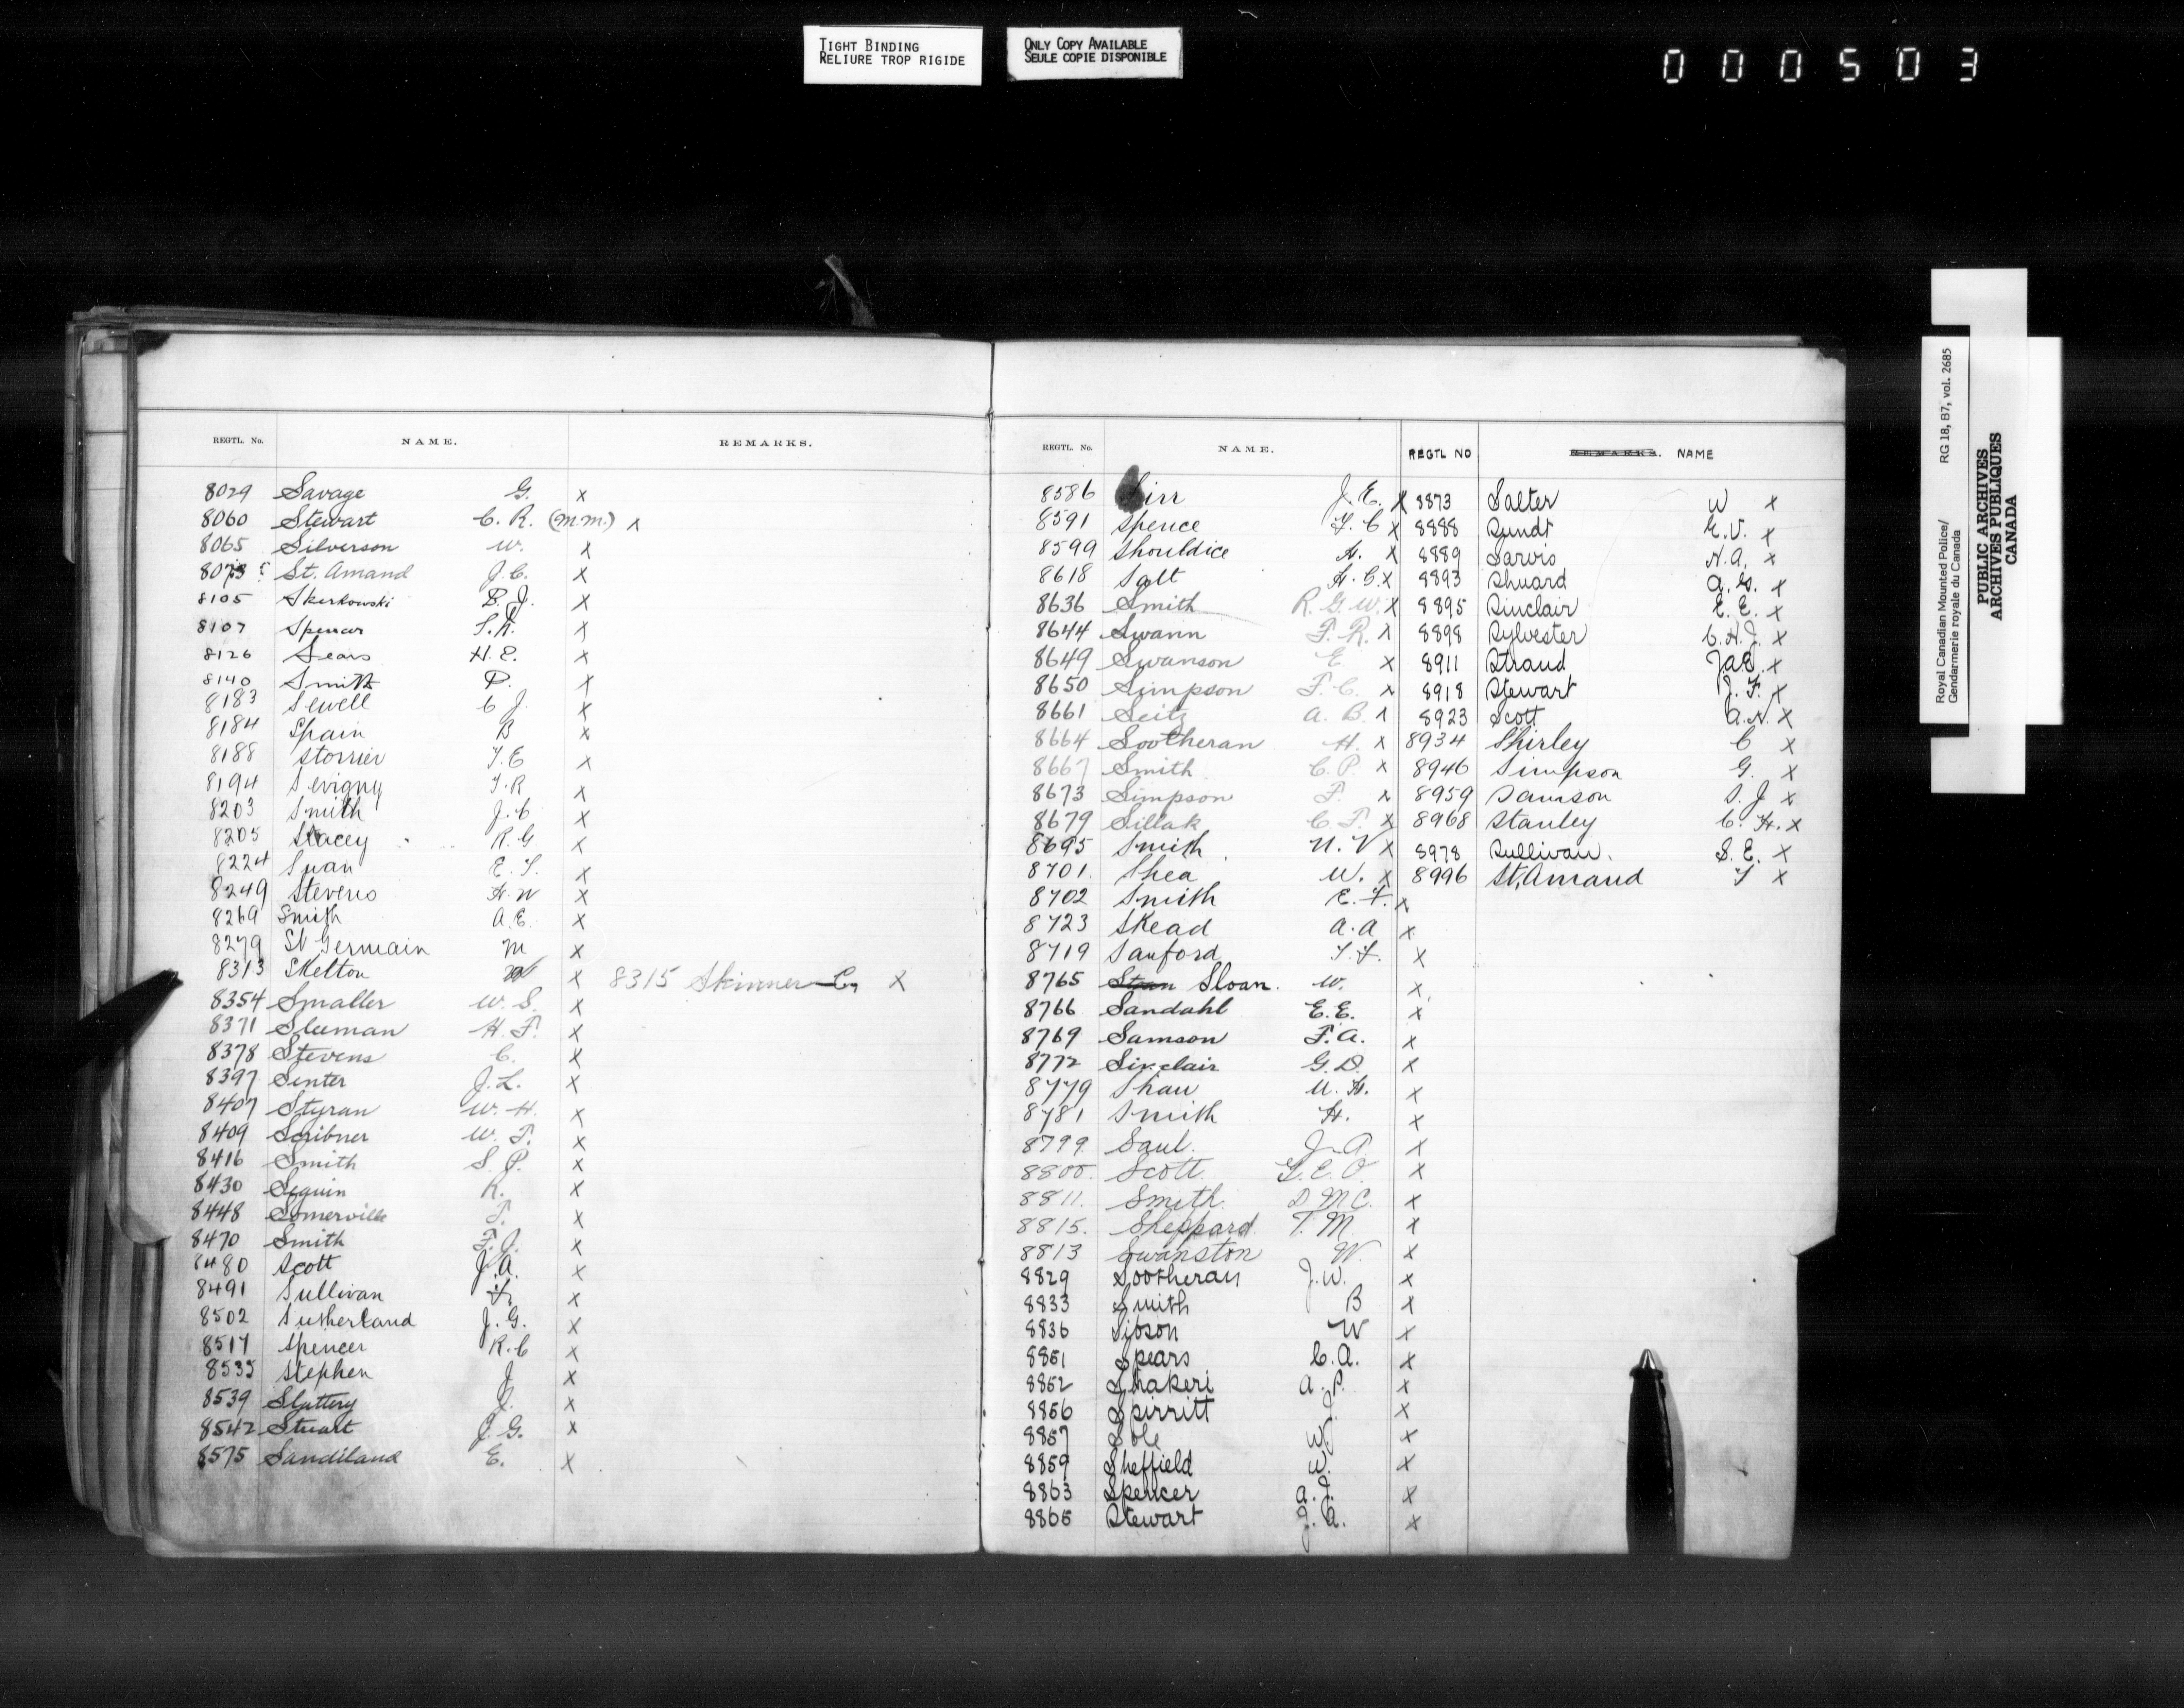 TIGHT BINDING
RELIURE TROP RIGIDE
ONLY COPY AVAILABLE
SEULE COPIE DISPONIBLE
000503
REGTL. No. NAME. REMARKS.
8029 Savage G. x
8060 Stewart C. R. (M.M.) x
8065 Silverson W. x
St. Amand J.C. x
8105 Skerkowski B. J. x
8107 Spencer x
8126 Sears H. E. x
8140 Smith P. x
8183 Sewell C J. x
8184 Spain B x
8188 Storrier T.E x
8194 Sevigny T.R x
8203 Smith J.C x
8205 Stacey R.G x
8224 Swan E.T. x
8249 Stevens H.W x
8269 Smith A.E. x
8279 St Germain M x
8313 Skelton x 8315 Skinner C. x
8354 Smaller W.S. x
8371 Sleeman H.F. x
8378 Stevens C. x
8397 Senter J.L. x
8407 Styran W.H. x
8409 Scribner W.F. x
8416 Smith S.P. x
8430 Seguin R. x
8448 Somerville F. x
8470 Smith F.J. x
8480 Scott J.A. x
8491 Sullivan x
8502 Sutherland J.G. x
8517 Spencer R.C x
8535 Stephen J x
8539 Slattery J. x
8542 Stuart J.G. x
8575 Sandiland E. x
REGTL. No. NAME.
8586 Sirr J.E. x
8591 Spence x
8599 Shouldice H. x
8618 Salt H.C. x
8636 Smith R.G.W. x
8644 Swann F.R. x
8649 Swanson E. x
8650 Simpson F.C. x
8661 Seitz A.B. x
8664 Sootheran H. x
8667 Smith C.P. x
8673 Simpson F. x
8679 Sillak C.F. x
8695 Smith N.V x
8701 Shea W. x
8702 Smith E.F. x
8723 Skead A.A x
8719 Sanford T.F. x
8765 Sloan. W. x
8766 Sandahl E.E. x
8769 Samson F.A. x
8772 Sinclair G.D. x
8779 Shaw x
8781 Smith H. x
8799 Saul. J.A x
8800. Scott. G.E.O. x
8811. Smith. D.M.C. x
8815. Sheppard T.M. x
8813 Swanston W. x
8829 Sootheran J.W. x
8833 Smith B x
8836 Sibson W x
8851 Spears C.A. x
8852 Shakeri A.P. x
8856 Spirritt J. x
8857 Sole W. x
8859 Sheffield W. x
8863 Spencer A.J. x
8865 Stewart J.A. x
REGTL NO REMARKS. NAME
8873 Salter W x
8888 Sundt E.V. x
8889 Sarvis N.A. x
8893 Shuard A.G. x
8895 Sinclair E.E. x
8898 Sylvester C.H.J. x
8911 Straud Jas. x
8918 Stewart J.F. x
8923 Scott A.N. x
8934 Shirley C x
8946 Simpson G. x
8959 Samson S.J x
8968 Stanley C.H. x
8978 Sullivan. S.E. x
8996 St. Amand T x
Royal Canadian Mounted Police/
Gendarmerie royale du Canada
RG 18, B7, vol. 2685
PUBLIC ARCHIVES
ARCHIVES PUBLIQUES
CANADA